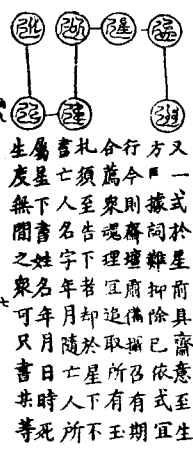 又一式於星前具齋意至生
方據詞難抑除已依式宜
行今則齋壇肅備攝召有期
合薦衆魂理宜追取所有玉
札須至告下者却於星下不
書亡人名字年月隨亡人所
屬星下書姓名年月日時死
生度無間之衆可只書共等
七